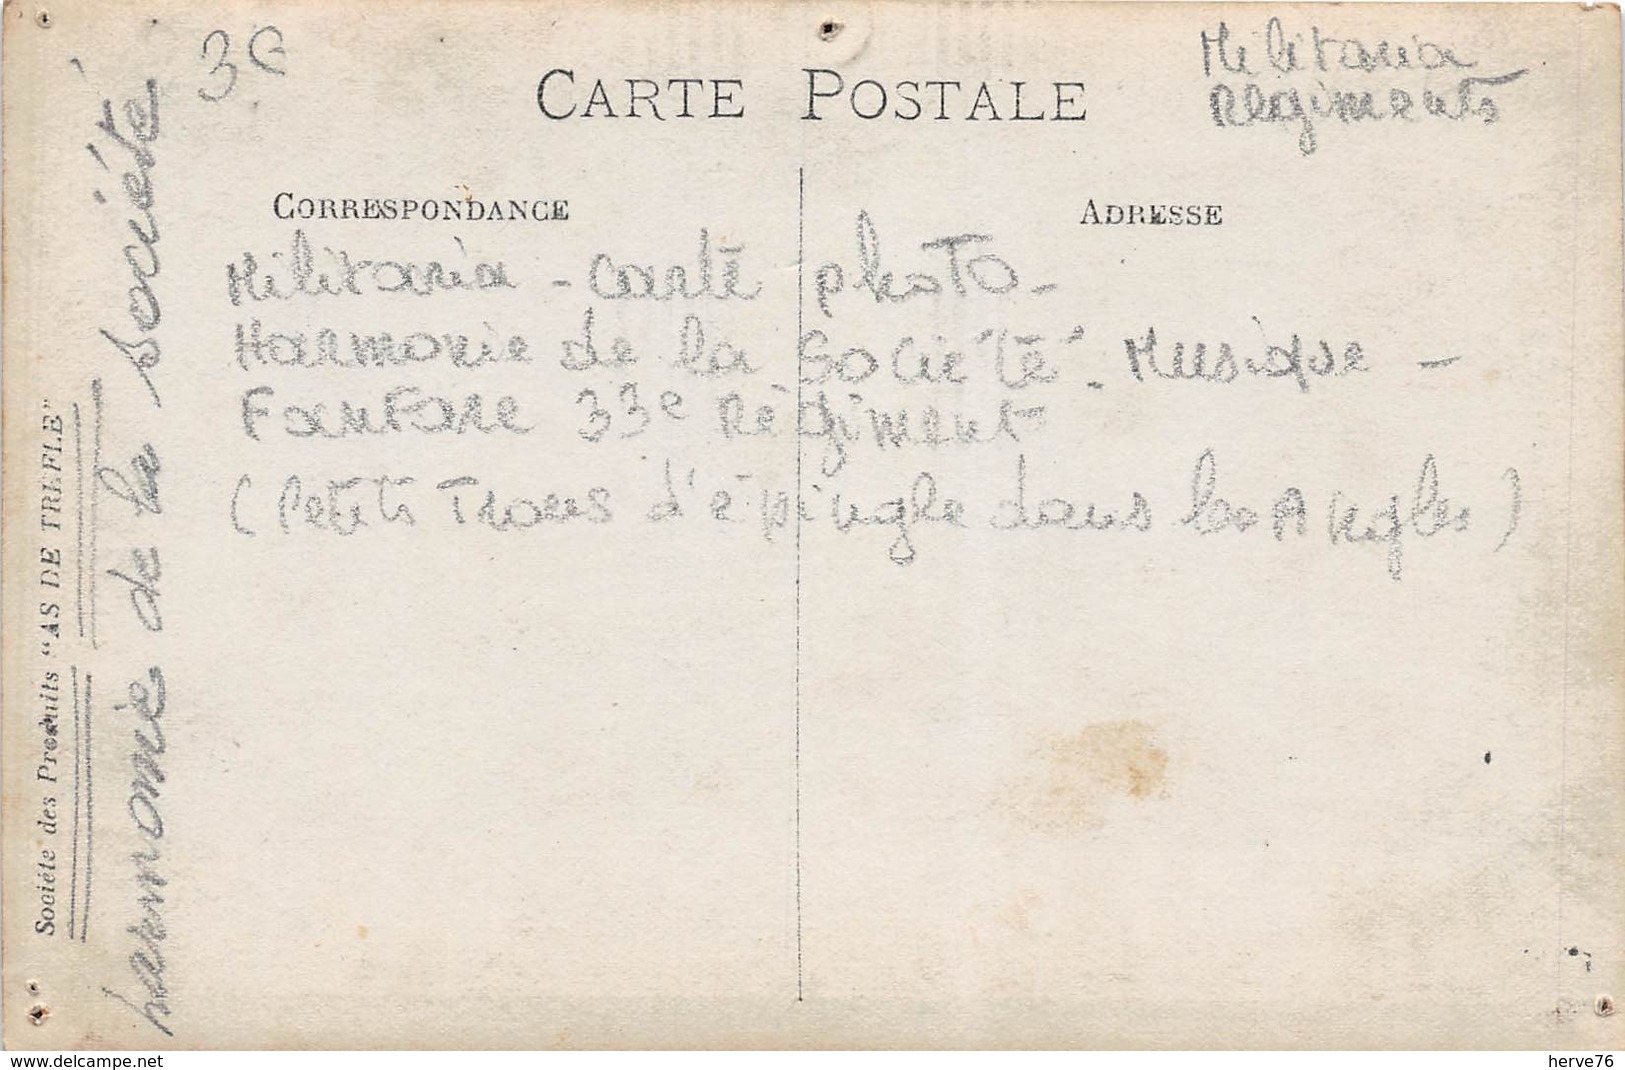 3€
CARTE POSTALE
Militaria
Régiments
CORRESPONDANCE
ADRESSE
Militaria - Carte photo -
Harmonie de la Société - Musique -
Fanfare 33e Régiment
(Petits Trous d'épingle dans les Angles)
Société des Produits "AS DE TREFLE"
harmonie de la Société
www.delcampe.net
herve76